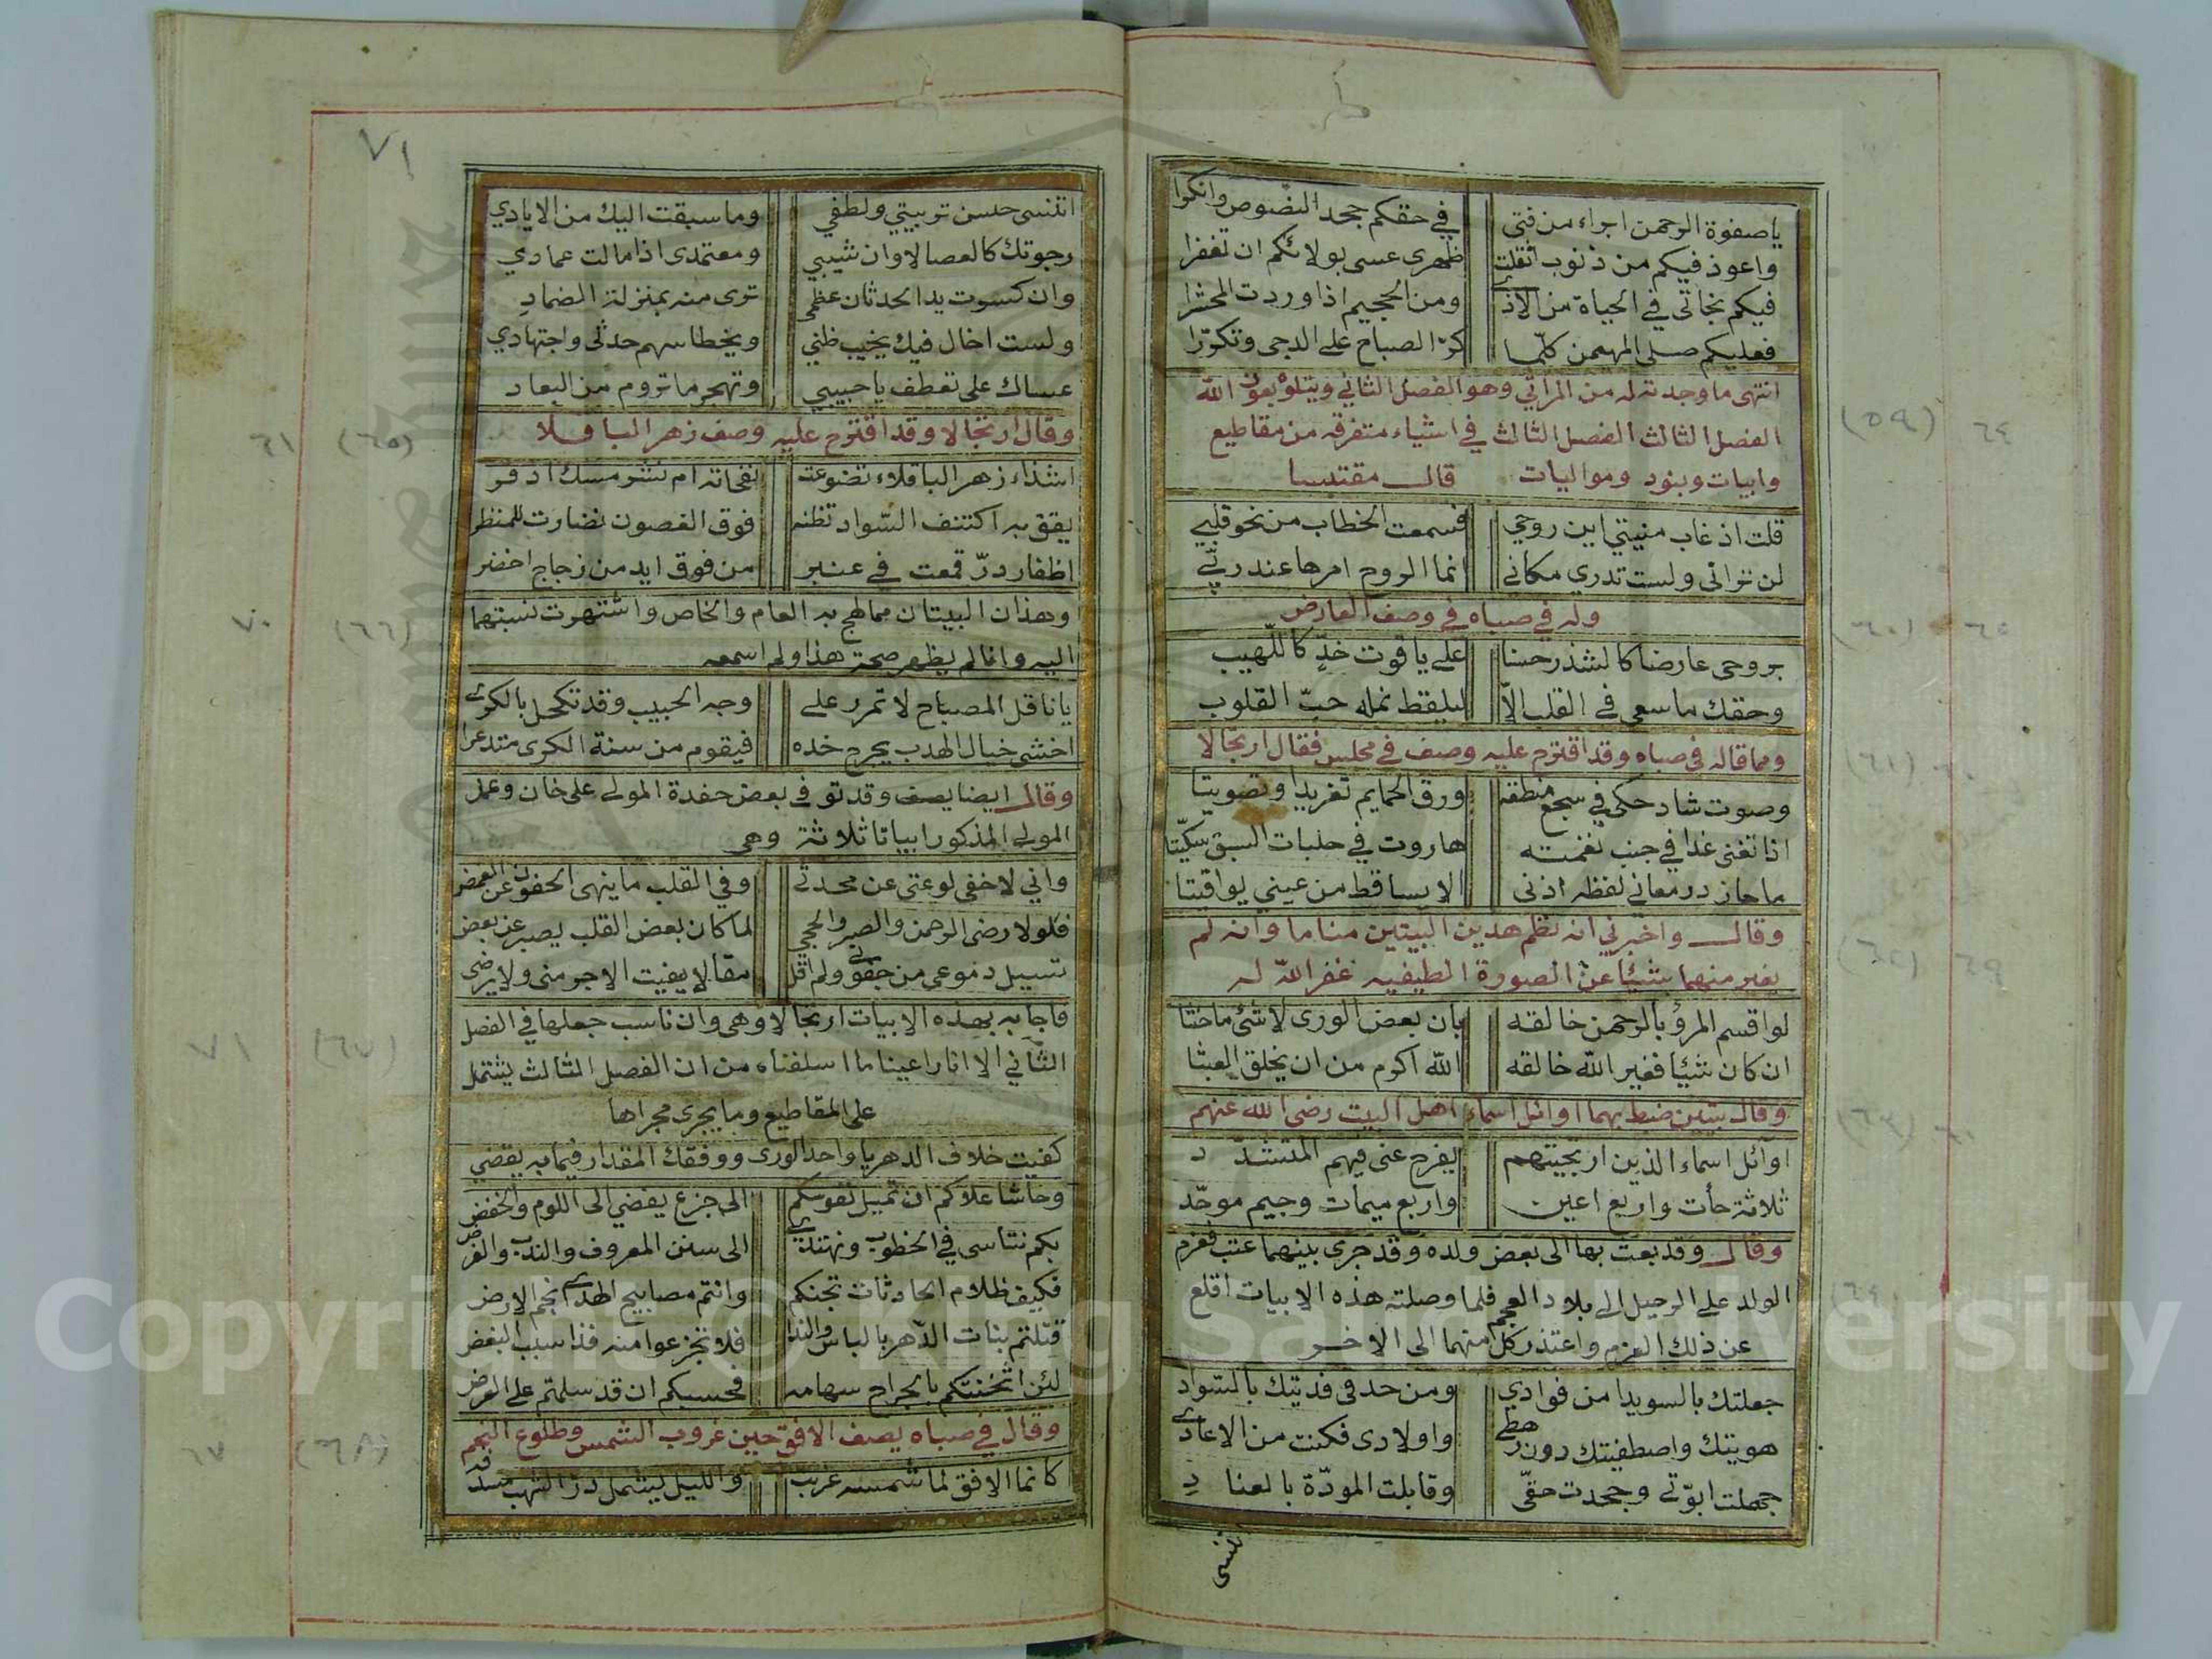 ياصفوة الرحمن ابراء من فتى في حقكم جحد النصوص وانكرا
واعوذ فيكم من ذنوب اثقلت ظهري عسى بولائكم ان تغفرا
فيكم نجاتي في الحياة من الاذى ومن الجحيم اذا وردت المحشرا
فعليكم صلى المهيمن كلّما كرّ الصباح على الدجى وتكوّرا
انتهى ما وجدته له من المراثي وهو الفصل الثاني ويتلوه بعون الله
الفصل الثالث الفصل الثالث في اشياء متفرقه من مقاطيع
وابيات وبنود ومواليات قال مقتبسا
قلت اذ غاب منيتي اين روحي فسمعت الخطاب من نحو قلبي
لن تراني ولست تدري مكاني انما الروح امرها عند ربّي
وله في صباه في وصف العارض
بروحي عارضا كالشذر حسنا على ياقوت خدٍّ كاللّهيب
وحقك ما سعى في القلب الاّ ليلقط نمله حبّ القلوب
ومما قاله في صباه وقد اقترح عليه وصف في مجلس فقال ارتجالا
وصوت شاد حكى في سجع منطقه ورق الحمايم تغريدا وتصويتا
اذا تغنى غدا في جنب نغمته هاروت في حلبات السبق سكّيتا
ما حاز در معاني لفظه اذنى الا يساقط من عيني يواقيتا
وقال واخبرني انه نظم هذين البيتين مناما وانه لم
يغير منهما شيئا عن الصورة الطيفيه غفر الله له
لو اقسم المرؤ بالرحمن خالقه بان بعض الورى لا شئ ما حنثا
ان كان شيئا فغير الله خالقه الله اكرم من ان يخلق العبثا
وقال بيتين ضبط بهما اوائل اسماء اهل البيت رضى الله عنهم
اوآئل اسماء الذين ارتجيتهم يفرج عنى فيهم المتشدّد
ثلاثة حأت واربع اعين واربع ميمات وجيم موحّد
وقال وقد بعث بها الى بعض ولده وقد جرى بينهما عتب فعزم
الولد على الرحيل الى بلاد العجم فلما وصلته هذه الابيات اقلع
عن ذلك العزم واعتذر كل منهما الى الاخر
جعلتك بالسويدا من فوادي ومن حدقى فديتك بالسواد
هويتك واصطفيتك دون رهطى واولادى فكنت من الاعادى
جهلت ابوّتي وجحدت حقّي وقابلت المودّة بالعناد
تنسى
(٥٩) ٦٤
(٦٠) ٦٥
(٦١)
(٦٢) ٦٩
(٦٣)
٦٤
٧١
اتنسى حسن تربيتي ولطفي وما سبقت اليك من الايادي
رجوتك كالعصا لاوان شيبي ومعتمدى اذا مالت عمادي
وان كسرت يد الحدثان عظمى ترى منه بمنزلة الضماد
ولست اخال فيك يخيب ظني ويخطا سهم حدثى واجتهادي
عساك على تعطف يا حبيبي وتهجر ما تروم من البعاد
وقال ارتجالا وقد اقترح عليه وصف زهر الباقلا
اشذاء زهر الباقلاء تضوعت نفحاته ام نشر مسك اذفر
يقق به اكتنف السّواد تظنه فوق الغصون نضارت للمنظر
اظفار درّ قمعت في عنبر من فوق ايد من زجاج اخضر
وهذان البيتان مما لهج به العام والخاص واشتهرت نسبتهما
اليه وانا لم يظهر صحة هذا ولم اسمعه
يا ناقل المصباح لا تمرر على وجه الحبيب وقد تكحل بالكرى
اخشى خيال الهدب يجرح خده فيقوم من سنة الكرى متذعرا
وقال ايضا يصف وقد توفى بعض حفدة المولى على خان وعمل
المولى المذكور ابياتا ثلاثة وهى
واني لاخفى لوعتى عن محدثي وفي القلب ما ينهى الجفون عن الغمض
فلولا رضى الرحمن والصبر والحجى لما كان بعض القلب يصبر عن بعض
تسيل دموعى من جفوني ولم اقل مقالا يفيت الاجر منى ولا يرضى
فاجابه بهذه الابيات ارتجالا وهى وان ناسب جعلها في الفصل
الثاني الا انا راعينا ما اسلفناه من ان الفصل الثالث يشتمل
على المقاطيع وما يجرى مجراها
كفيت خلاف الدهر يا واحد الورى ووفقك المقدار فيما به يقضي
وحاشا علاكم ان تميل نفوسكم الى جزع يفضي الى اللوم والخفض
بكم نتاسى في الخطوب ونهتدى الى سنن المعروف والندب والفرض
فكيف ظلام الحادثات تجنكم وانتم مصابيح الهدى انجم الارض
قتلتم بنات الدّهر بالباس والندا فلا تجزعوا منه فذا سبب البغض
لئن اثخنتكم بالجراح سهامه فحسبكم ان قد سلمتم على العرض
وقال في صباه يصف الافق حين غروب الشمس وطلوع النجم
كانما الافق لما شمسه غربت والليل يشمل درّ الشهب
(٦٥) ٦١
(٦٦) ٧٠
(٦٧) ٧١
(٦٨) ٦٧
Copyright © King Saud University